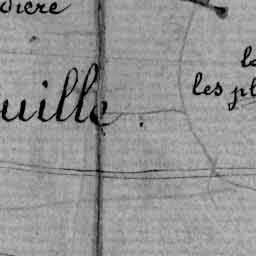 dière
uille.
le
les pl